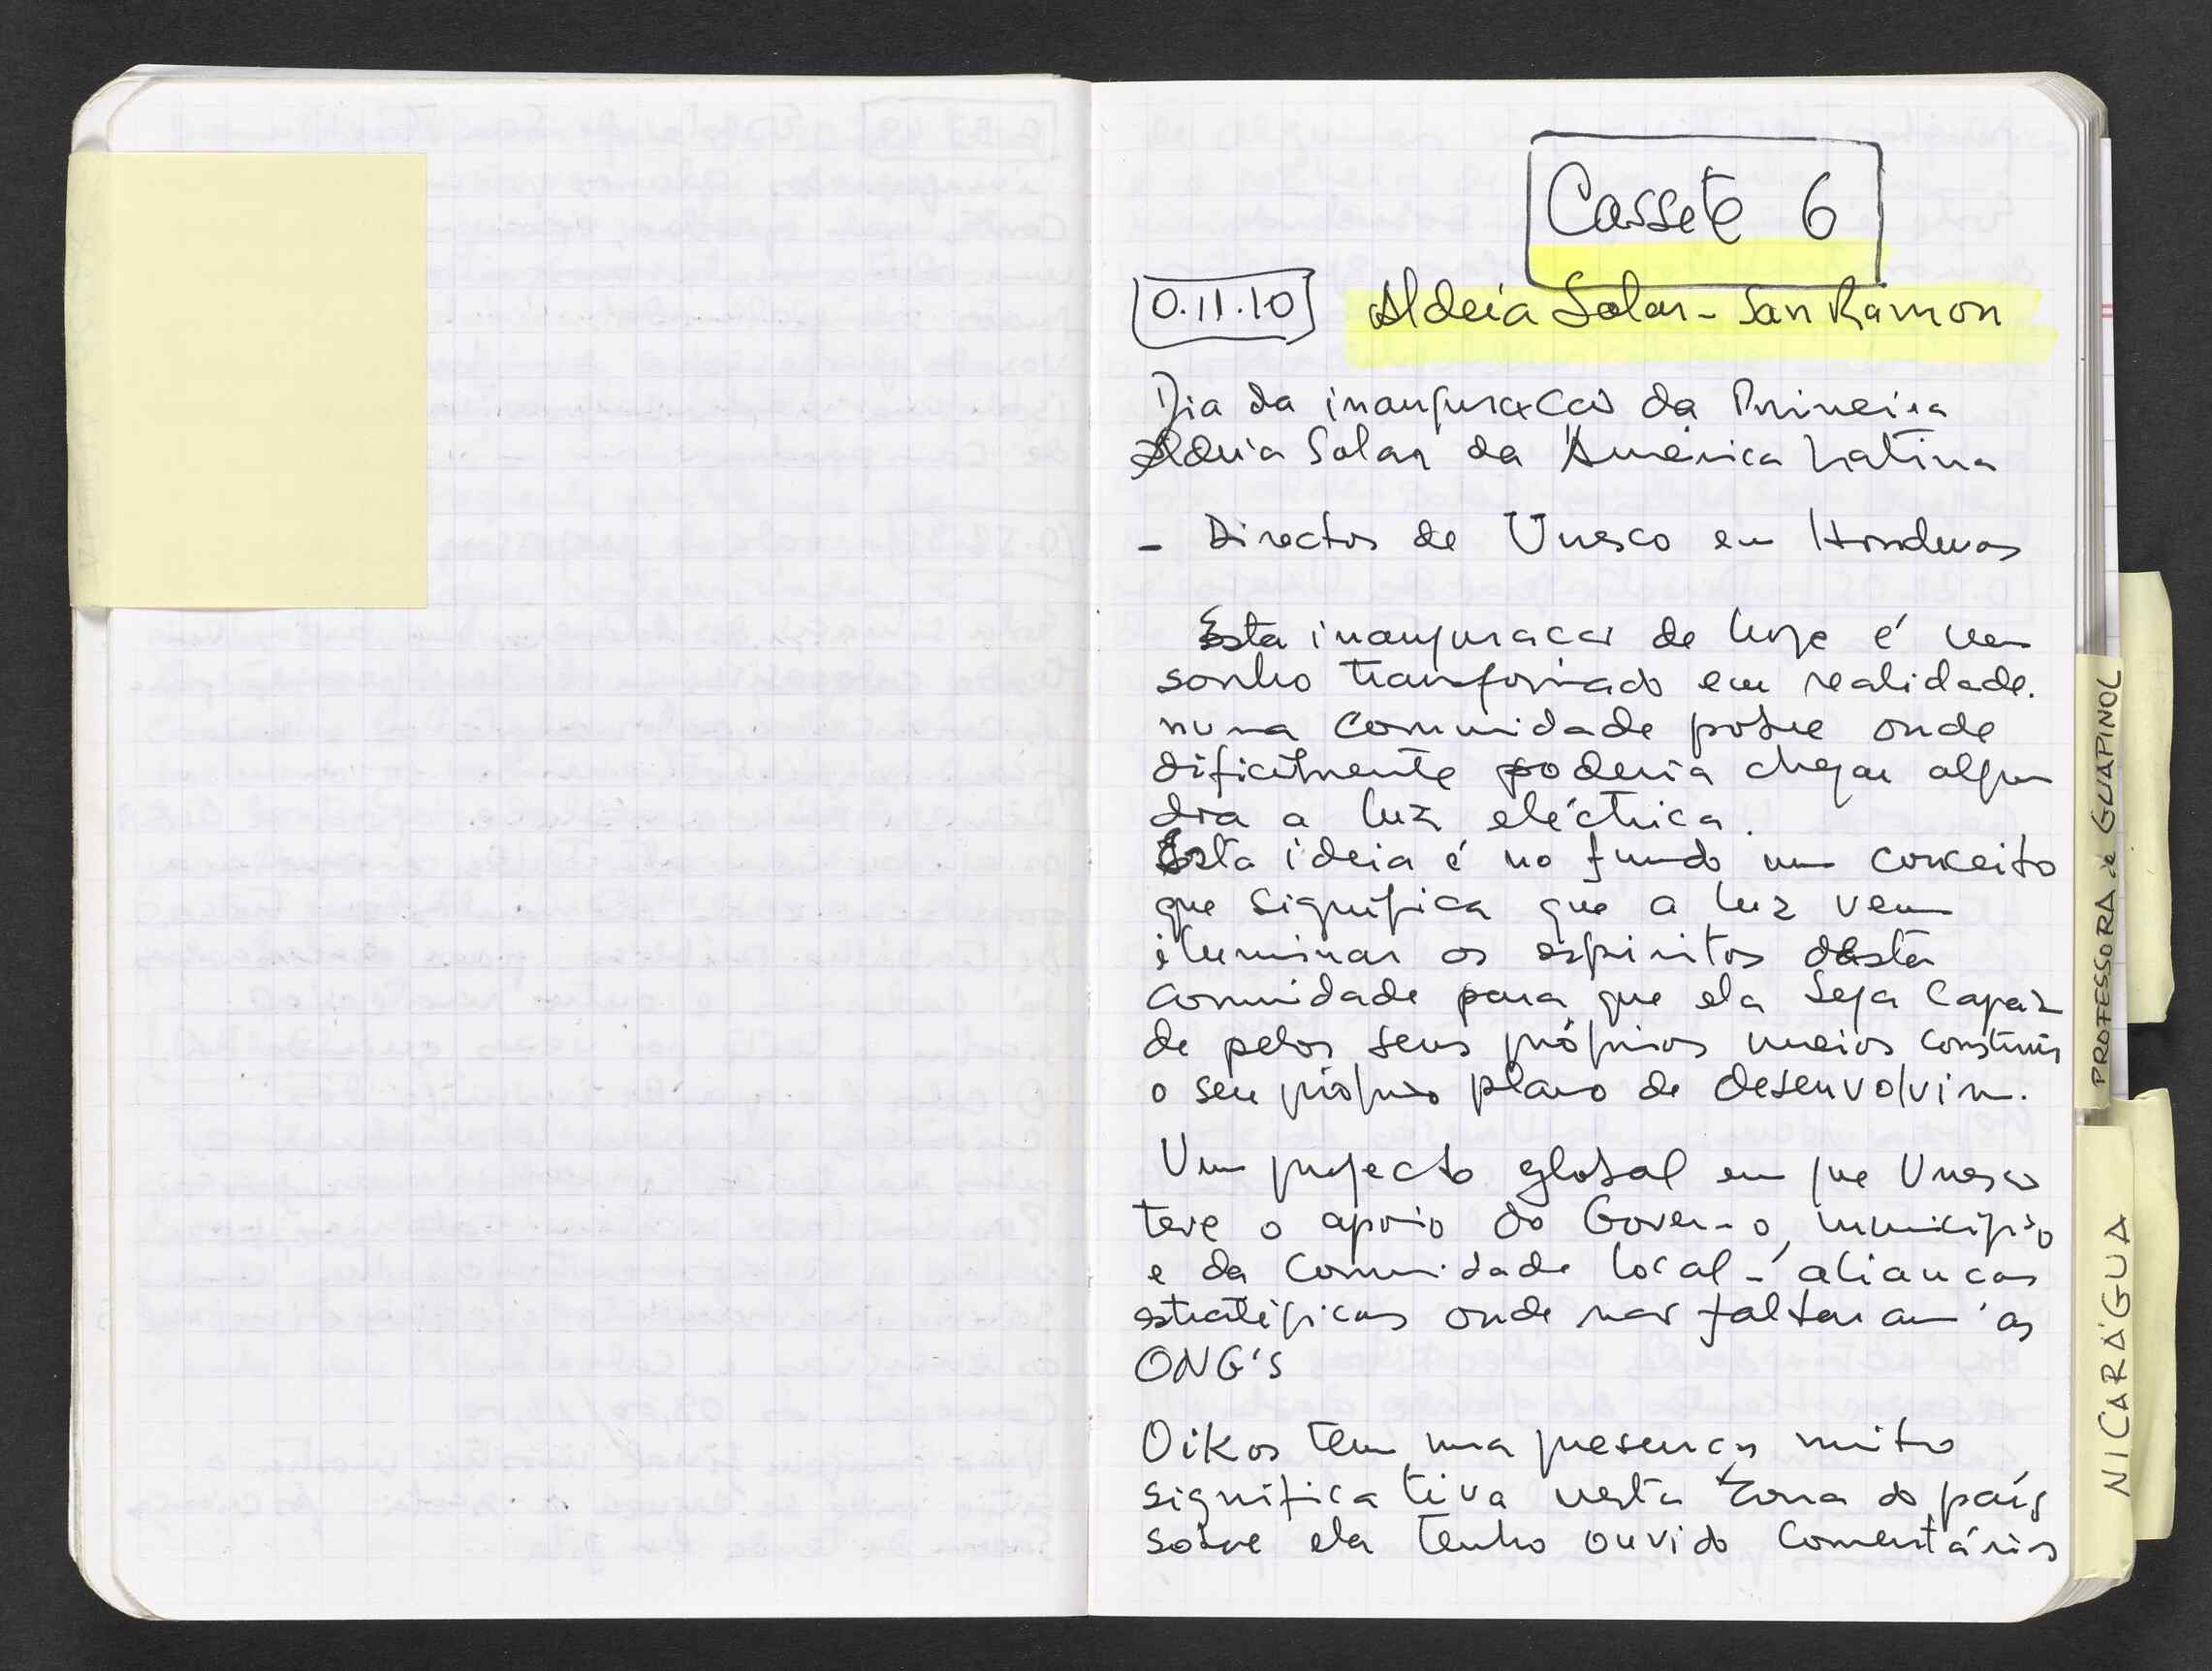 Cassete 6
0.11.10 Aldeia Solar - San Ramon
Dia da inauguracao da Primeira
Aldeia Solar da América Latina
- Director de Unesco em Honduras
Esta inauguracao de hoje é um
sonho transformado em realidade.
numa comunidade pobre onde
dificilmente poderia chegar algum
dia a luz eléctrica.
Esta ideia é no fundo um conceito
que significa que a luz vem
iluminar os espiritos desta
comunidade para que ela seja capaz
de pelos seus próprios meios construir
o seu próprio plano de desenvolvim.
Um projecto global em que Unesco
teve o apoio do Governo, município
e da comunidade local - aliancas
estratégicas onde nao faltaram as
ONG'S
Oikos tem uma presenca muito
significativa nesta zona do país
sobre ela tenho ouvido comentários
PROFESSORA de GUAPINOL
NICARÁGUA